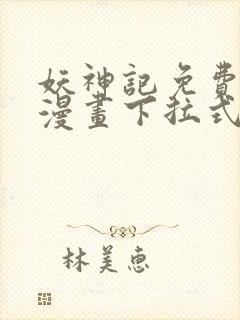 妖神記免費
漫畫下拉式
林美惠